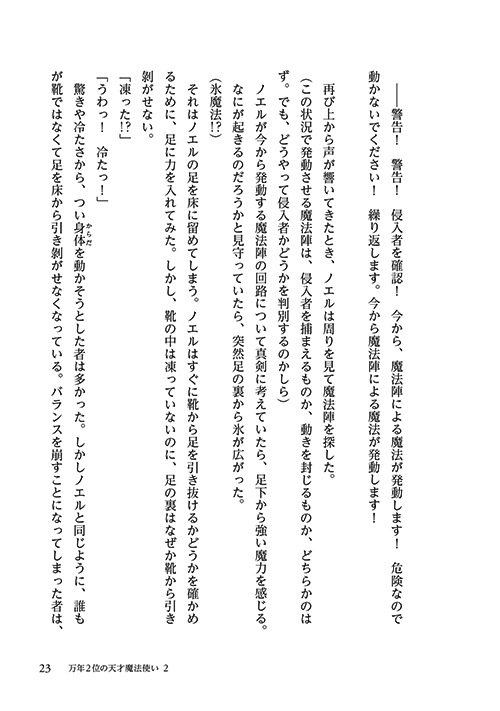 ――警告！　警告！　侵入者を確認！　今から、魔法陣による魔法が発動します！　危険なので
動かないでください！　繰り返します。今から魔法陣による魔法が発動します！
再び上から声が響いてきたとき、ノエルは周りを見て魔法陣を探した。
（この状況で発動させる魔法陣は、侵入者を捕まえるものか、動きを封じるものか、どちらかのは
ず。でも、どうやって侵入者かどうかを判別するのかしら）
ノエルが今から発動する魔法陣の回路について真剣に考えていたら、足下から強い魔力を感じる。
なにが起きるのだろうかと見守っていたら、突然足の裏から氷が広がった。
（氷魔法!?）
それはノエルの足を床に留めてしまう。ノエルはすぐに靴から足を引き抜けるかどうかを確かめ
るために、足に力を入れてみた。しかし、靴の中は凍っていないのに、足の裏はなぜか靴から引き
剝がせない。
「凍った!?」
「うわっ！　冷たっ！」
驚きや冷たさから、つい身体からだを動かそうとした者は多かった。しかしノエルと同じように、誰も
が靴ではなくて足を床から引き剝がせなくなっている。バランスを崩すことになってしまった者は、
23　万年2位の天才魔法使い 2